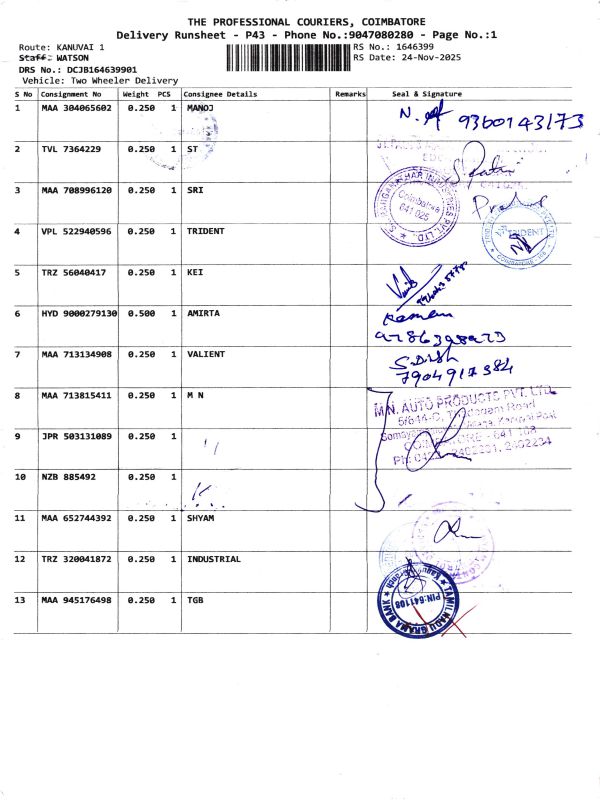 THE PROFESSIONAL COURIERS, COIMBATORE
Delivery Runsheet - P43 - Phone No.:9047080280 - Page No.:1
Route: KANUVAI 1
RS No.: 1646399
Staff: WATSON
RS Date: 24-Nov-2025
DRS No.: DCJB164639901
Vehicle: Two Wheeler Delivery
S No Consignment No Weight PCS Consignee Details Remarks Seal & Signature
1 MAA 304065602 0.250 1 MANOJ
9360143173
2 TVL 7364229 0.250 1 ST
3 MAA 708996120 0.250 1 SRI
Coimbatore
641 025
4 VPL 522940596 0.250 1 TRIDENT
TRIDENT
5 TRZ 56040417 0.250 1 KEI
6 HYD 9000279130 0.500 1 AMIRTA
7 MAA 713134908 0.250 1 VALIENT
7904917384
8 MAA 713815411 0.250 1 M N
M.N. AUTO PRODUCTS PVT. LTD.
9 JPR 503131089 0.250 1
COIMBATORE - 641 108
10 NZB 885492 0.250 1
11 MAA 652744392 0.250 1 SHYAM
12 TRZ 320041872 0.250 1 INDUSTRIAL
13 MAA 945176498 0.250 1 TGB
TAMIL NADU GRAMA BANK
PIN:641108